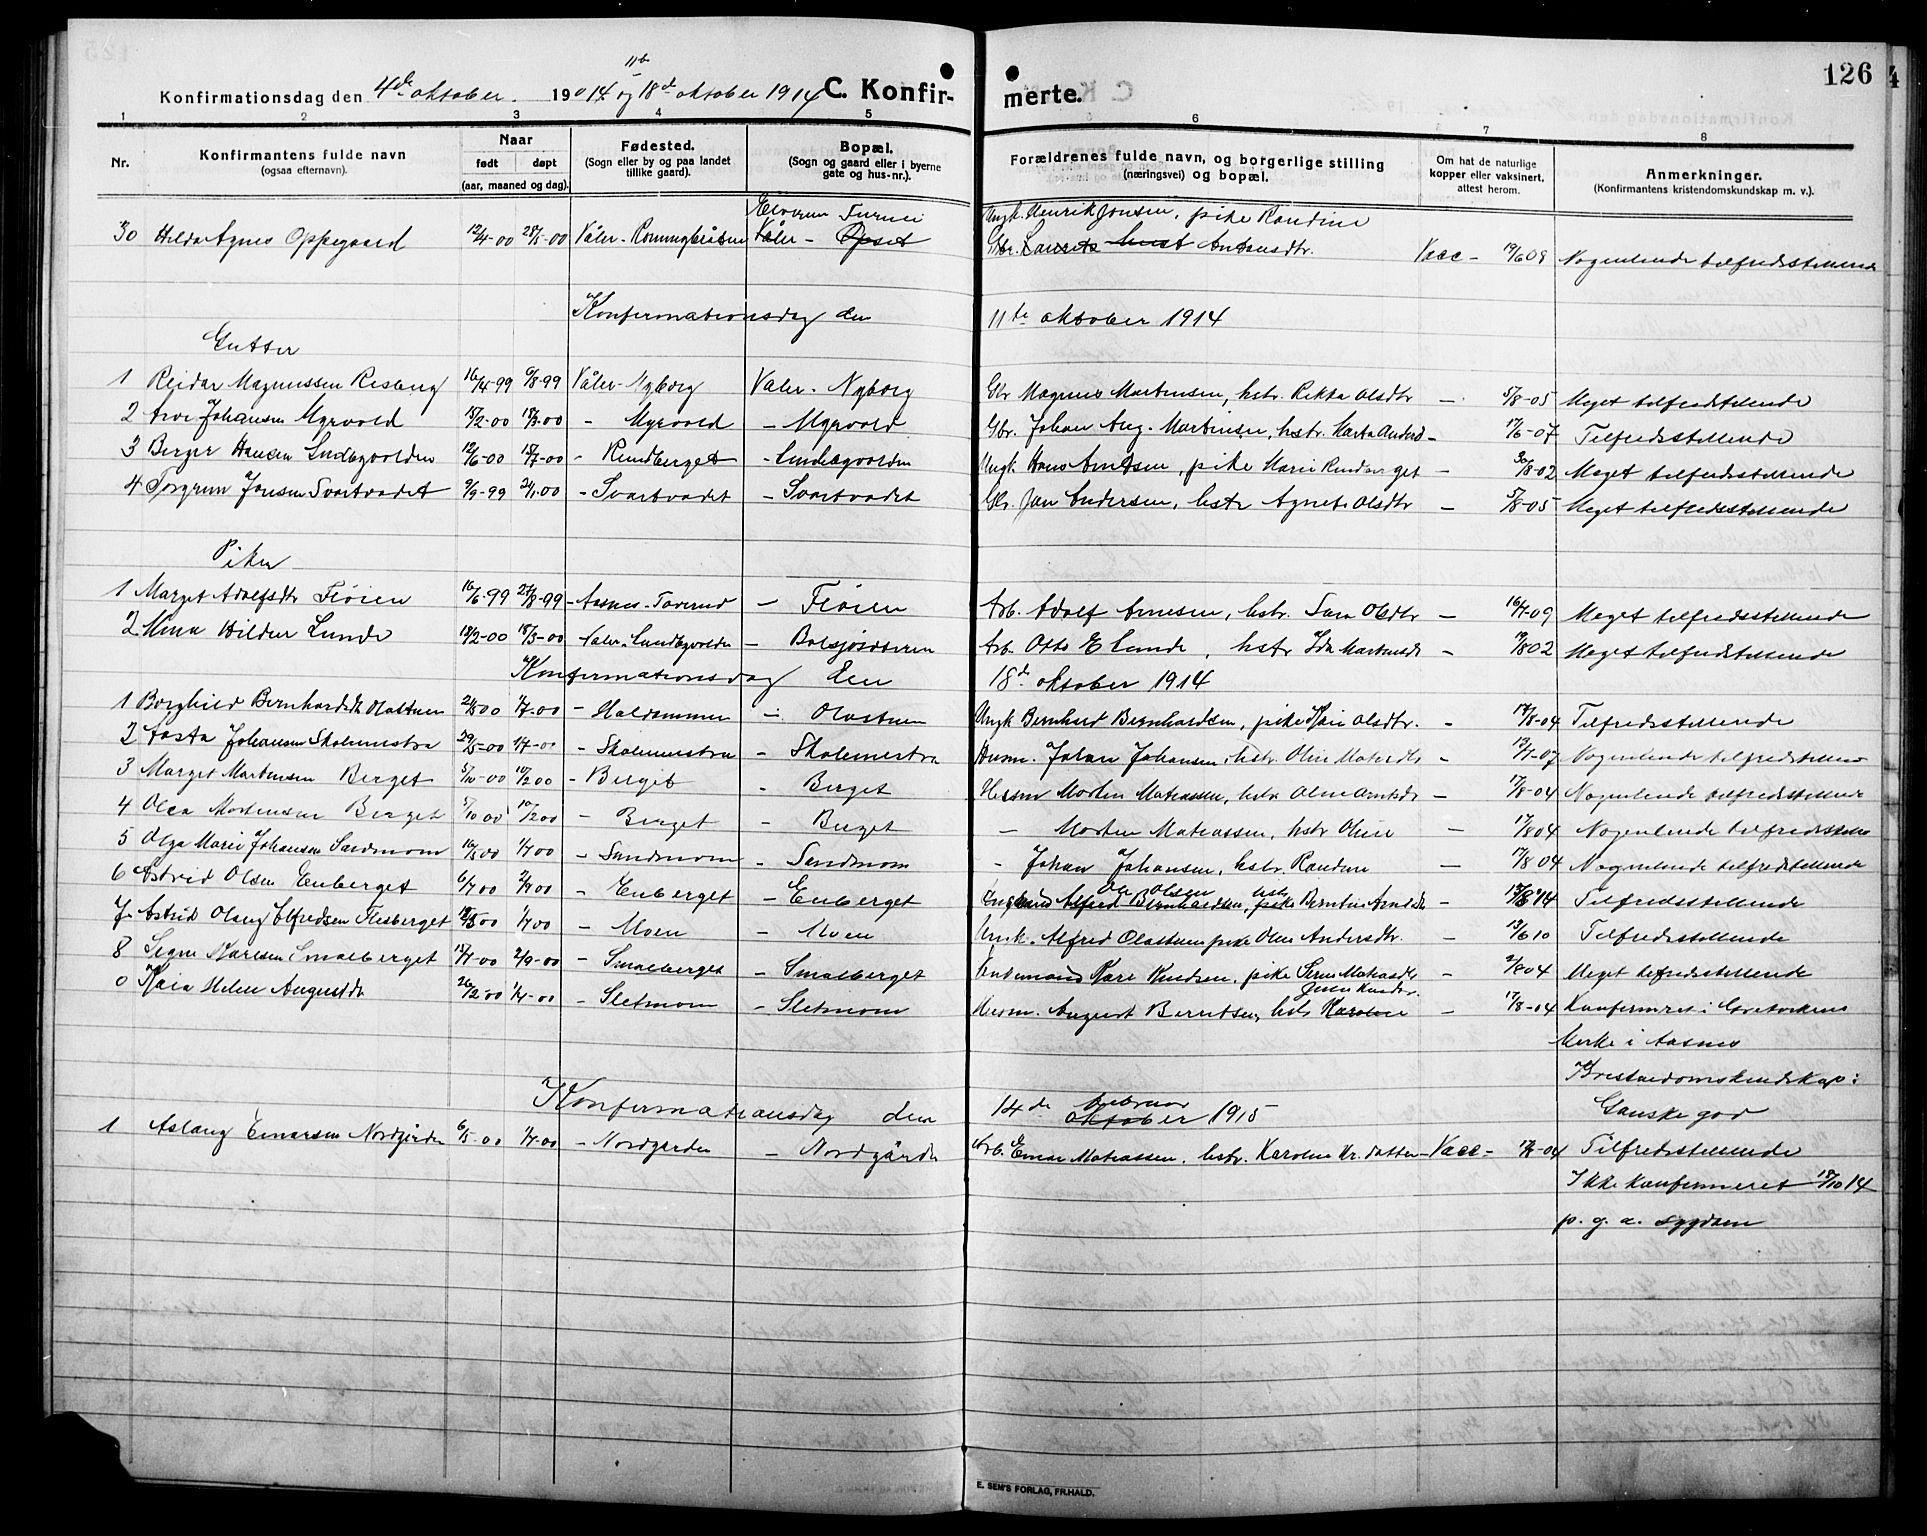 126
Konfirmationsdag den 4de oktober 1914 11te og 18de oktober 1914 C. Konfirmerte.
1 2 3 4 5 6 7 8
Nr.
Konfirmantens fulde navn
(ogsaa efternavn).
Naar
født døpt
(aar, maaned og dag).
Fødested.
(Sogn eller by og paa landet
tillike gaard).
Bopæl.
(Sogn og gaard eller i byerne
gate og hus-nr.).
Forældrenes fulde navn, og borgerlige stilling
(næringsvei) og bopæl.
Om hat de naturlige
kopper eller vaksinert,
attest herom.
Anmerkninger.
(Konfirmantens kristendomskundskap m. v.).
Elverum Ungk. Henrik Jonsen, pike Randine
30 Hilda Agnes Oppegaard 12/4-00 Våler Våler - Opset Gbr. Antonsdtr. Vacc - 19/6 09 Nogenlunde tilfredsstillende
Konfirmationsdag den 11te oktober 1914
Gutter
1 Reidar Magnussen Risberg 16/4-99 9/8-99 Våler - Nyborg Våler - Nyborg Gbr Magnus Martinsen, hstr. Rikka Olsdtr - 5/8-05 Meget tilfredstillende
2 Arve Johansen Myrvold 15/2-00 - Myrvold - Myrvold Gbr. Johan Aug. Martinsen, hstr. Marta - 17/6-07 Tilfredsstillende
3 Berger Hansen Lundbyvolden 12/6-00 15/7-00 - Rundberget - Lundbyvolden Ungk. Hans Arntsen, pike Marie Rundberget - 30/8-02 Meget tilfredsstillende
4 Torgrim Jonsen Svartvadet 9/9-99 - Svartvadet - Svartvadet Gbr. Jon Andersen, hstr Agnete Olsdtr - 5/8-05 Meget tilfredsstillende
Piker
1 Marget Adolfsdtr Fløien 16/6-99 27/8-99 - Aasnes - - Fløien Arb. Adolf Arnesen, hstr. Olsdtr - 16/7-09 Meget tilfredsstillende
2 Mina Hildur Lunde 18/2-00 18/3-00 - Våler - Lundbyvolden - Arb. Otto E Lunde, hstr Ida Martinsdtr - 19/8 02 Meget tilfredstillende
Konfirmationsdag den 18de oktober 1914
1 Borghild Bernhardsdtr Olastuen 1/7-00 - Haldammen - Olastuen Ungk Bernhard Bernhardsen, pike Olsdtr. - 17/8-04 Tilfredsstillende
2 Aasta Johansen Skolemestra 29/5-00 1/7-00 - Skolemestra - Skolemestra Husm. Johan Johansen, hstr. Oline - Nogenlunde tilfredsstillende
3 Marget Mortensen Berget 5/10-00 10/12 00 - Berget - Berget Husm Morten Matiassen, hstr Oline Arntsdtr - 17/8-04 Nogenlunde tilfredsstillende
4 Olea Mortensen Berget 5/10 00 10/12 00 - Berget - Berget - Morten Matiassen, hstr Oline - 17/8 04 Nogenlunde tilfredsstillende
5 Olga Marie Johansen Sandmom 16/5 00 1/7 00 - Sandmom - Sandmom - Johan Johansen, hstr. Randine - 17/8 04 Nogenlunde tilfredstillende
6 Astrid Olsen Enberget 6/7 00 2/9 00 - Enberget - Enberget Ole Olsen hstr Alfred Bernhardsen, pike Berntine - Tilfredsstillende
7 Astrid Alfredsen Flisberget 1/7 00 - Moen - Moen Ungk. Alfred Olastuen pike Oline Andersdtr. - 13/6 10 Tilfredsstillende
8 Signe Karlsen Smalberget 2/9-00 - Smalberget - Smalberget Kare Knudsen, pike - 2/8 04 Meget tilfredsstillende
0 Kaia Helene Augustdtr 26/2 00 1/4-00 - Sletmom - Sletmom Husm. August Berntsen, hstr Karoline - 17/8-04 Konfirmeret i
kirke i Aasnes
Kristendomskundskap:
Ganske god
Konfirmationsdag den 14de februar oktober 1915
1 Aslaug Einarsen Nordgården 6/5-00 1/7-00 - Nordgården - Nordgården Arb. Einar Matiassen, hstr. Karoline Kr. datter - Vacc - Tilfredsstillende
Ikke konfirmeret 18/10 14
p. g. a. sygdom
E. SEM'S FORLAG, FR.HALD.